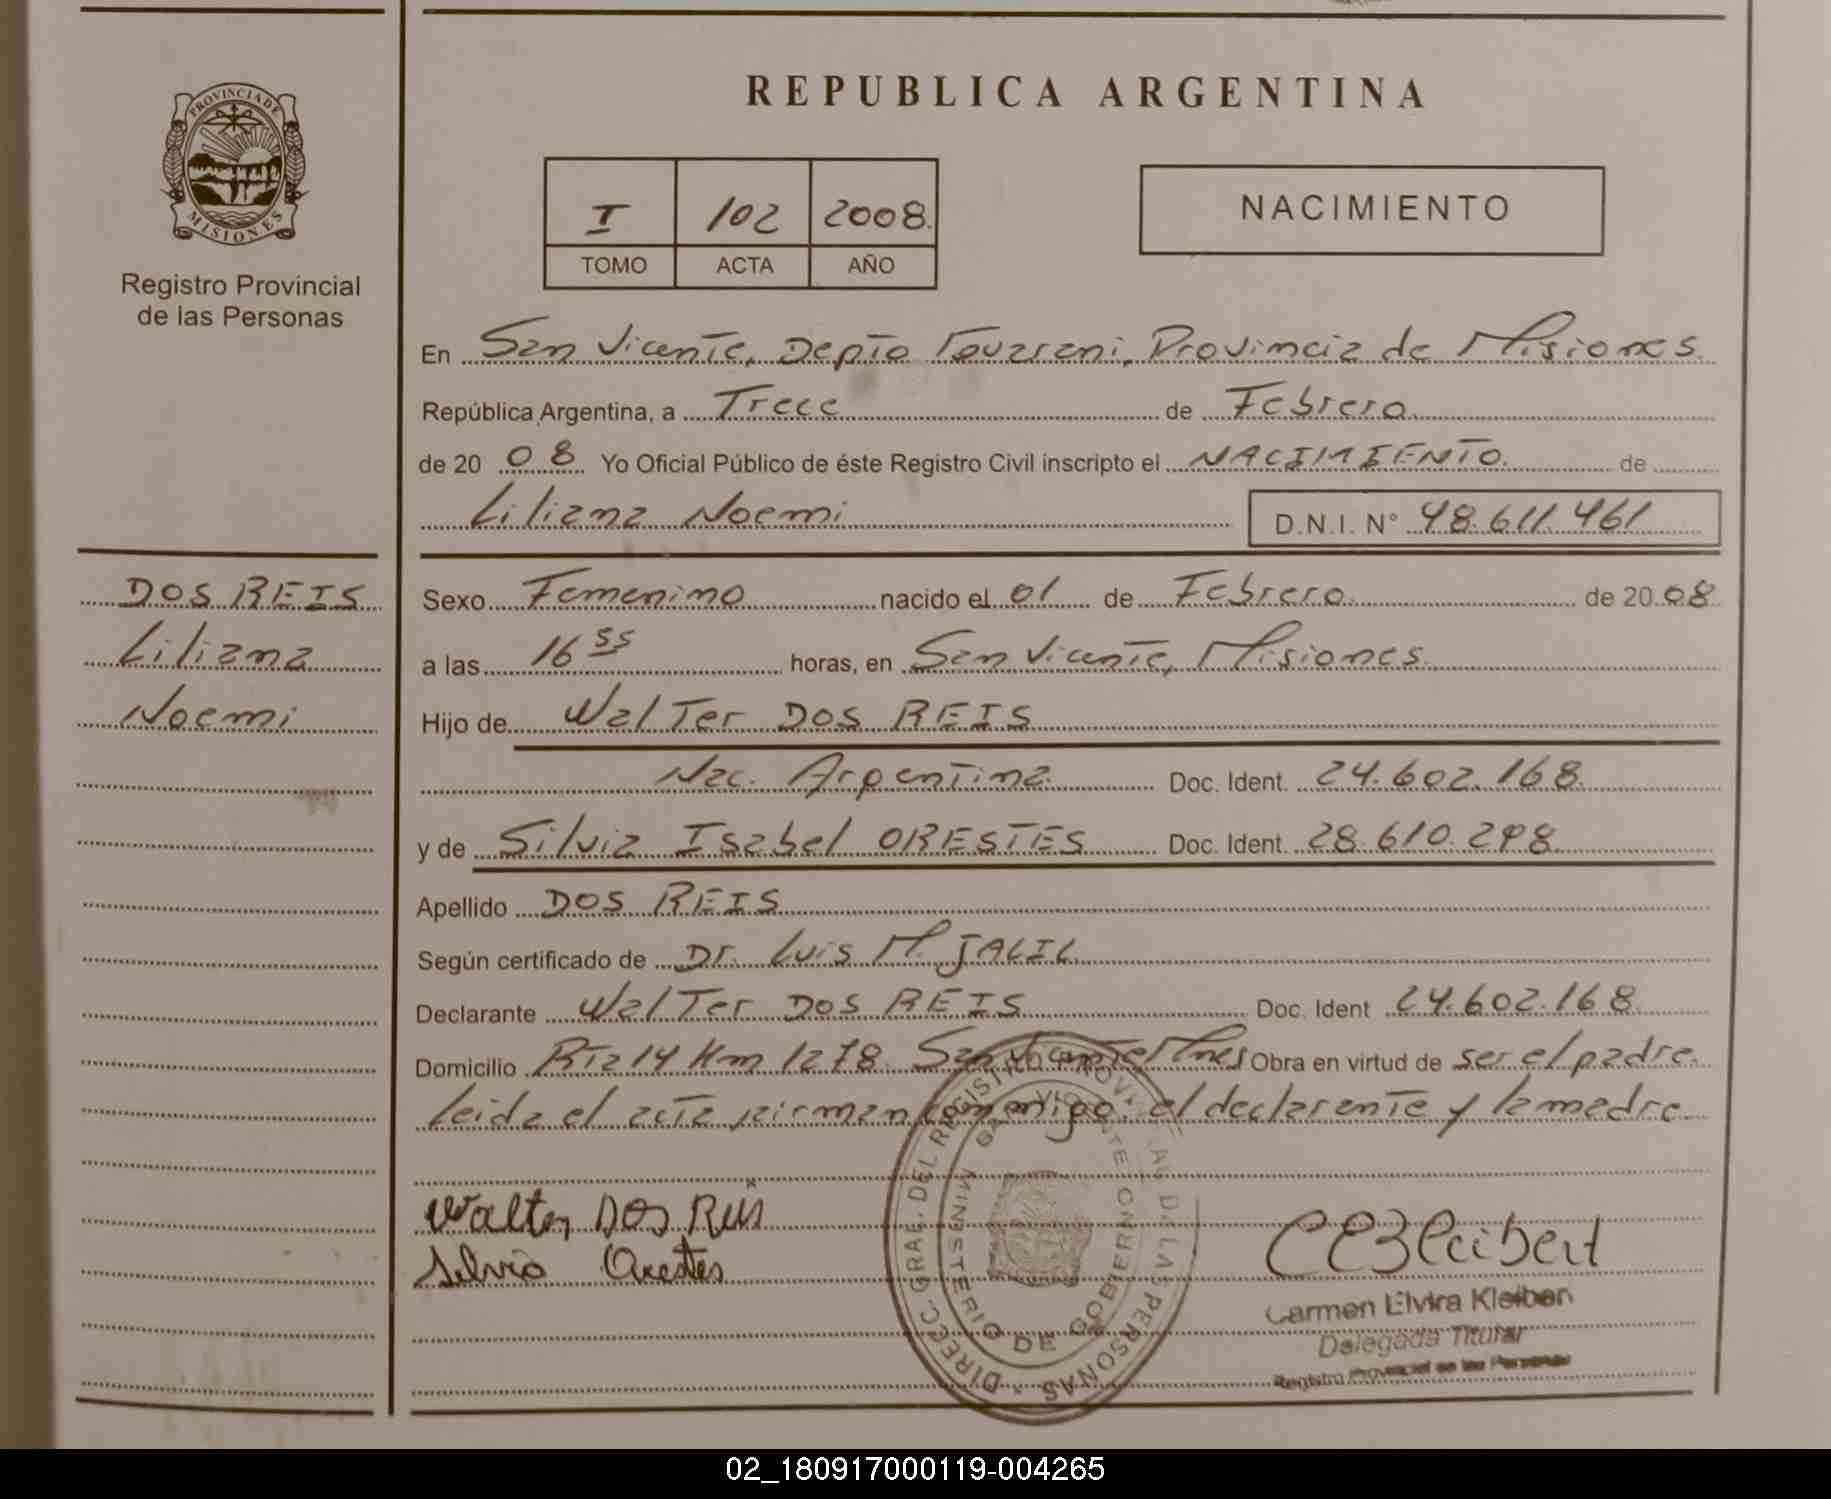 PROVINCIA DE
MISIONES
Registro Provincial
de las Personas
REPUBLICA ARGENTINA
I 102 2008.
TOMO ACTA AÑO
NACIMIENTO
En San Vicente, Depto Guarani, Provincia de Misiones.
República Argentina, a Trece de Febrero
de 20 08 Yo Oficial Público de éste Registro Civil inscripto el NACIMIENTO. de
Liliana Noemi D.N.I. N° 48.611.461
DOS REIS
Liliana
Noemi
Sexo Femenino nacido el 01 de Febrero de 20 08
a las 16 55 horas, en San Vicente, Misiones.
Hijo de Walter DOS REIS
Nac. Argentina. Doc. Ident. 24.602.168.
y de Silvia Isabel ORESTES Doc. Ident. 28.610.298.
Apellido DOS REIS
Según certificado de Dr. Luis M. JALIL
Declarante Walter DOS REIS Doc. Ident 24.602.168.
Domicilio Rta 14 Km 1278. San Vicente Mnes Obra en virtud de ser el padre.
Leida el acta firman conmigo el declarante y la madre.
Walter DOS Reis
Silvia Orestes
DIRECC. GRAL. DEL REGISTRO PROVINCIAL DE LAS PERSONAS
MINISTERIO DE GOBIERNO
CEKleibert
Carmen Elvira Kleiben
Delegada Titular
Registro Provincial de las Personas
02_180917000119-004265